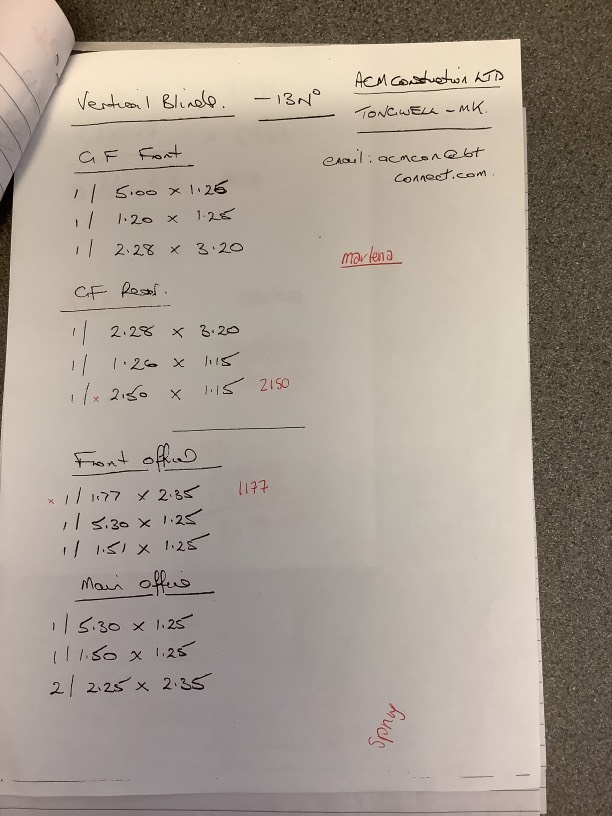 ACM Construction LTD
Vertical Blinds. - 13 No
TONGWELL - MK.
GF Front
email: acmcon@bt
connect.com.
1/ 5.00 x 1.25
1/ 1.20 x 1.25
1/ 2.28 x 3.20
marlena
GF Rear.
1/ 2.28 x 3.20
1/ 1.26 x 1.15
1/ x 2.50 x 1.15 2150
Front office
x 1/ 1.77 x 2.35 1177
1/ 5.30 x 1.25
1/ 1.51 x 1.25
Main office
1/ 5.30 x 1.25
1/ 1.50 x 1.25
2/ 2.25 x 2.35